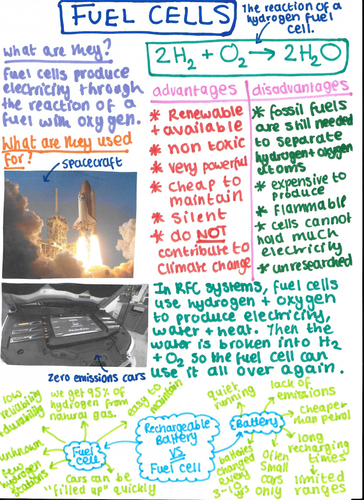 FUEL CELLS
The reaction of a
hydrogen fuel
cell.
2H₂ + O₂ → 2H₂O
What are they?
Fuel cells produce
electricity through
the reaction of a
fuel with oxygen.
What are they used
for?
spacecraft
zero emissions cars
advantages
* Renewable
+ available
* non toxic
* very powerful
* cheap to
maintain
* Silent
* do NOT
contribute to
climate change
disadvantages
* fossil fuels
are still needed
to separate
hydrogen + oxygen
atoms
* expensive to
produce
* flammable
* cells cannot
hold much
electricity
* unresearched
In RFC systems, fuel cells
use hydrogen + oxygen
to produce electricity,
water + heat. Then the
water is broken into H₂
+ O₂ so the fuel cell can
use it all over again.
Rechargeable
Battery
VS
Fuel cell
Fuel
cell
low
reliability
+ durability
we get 95% of
hydrogen from
natural gas.
easy to
maintain
unknown
few
hydrogen
stations
Cars can be
"filled up" quickly
Battery
quiet
running
lack of
emissions
cheaper
than petrol
long
recharging
times
limited
ranges
often
small
cars
only
batteries
changed
every
3-10 yrs